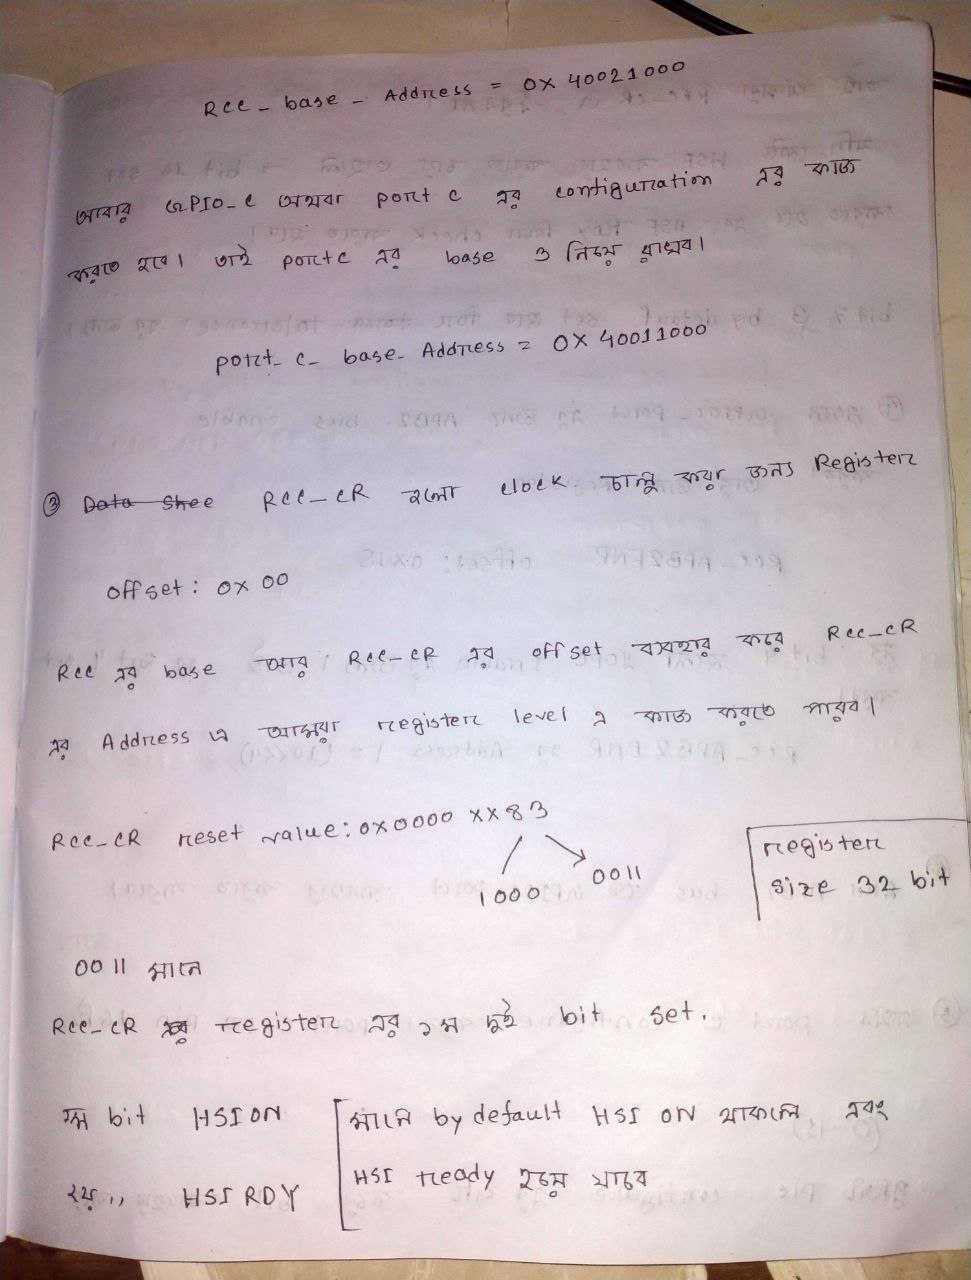 Rcc_base_Address = 0x40021000
আবার GPIO_C অথবা port c এর configuration এর কাজ
করতে হবে। তাই portc এর base ও নিয়ে রাখব।
port_c_base_Address = 0x40011000
③ Data Shee Rcc_CR হলো clock চালু করার জন্য Register
offset: 0x00
Rcc এর base আর Rcc_CR এর offset ব্যবহার করে Rcc_CR
এর Address এ আমরা register level এ কাজ করতে পারব।
Rcc_CR reset value: 0x0000 xx83
1000 0011
register
size 32 bit
0011 মানে
Rcc_CR এর register এর ১ম দুই bit set.
১ম bit HSION
২য় ,, HSI RDY
মানে by default HSI ON থাকলে এবং
HSI ready হয়ে যাবে